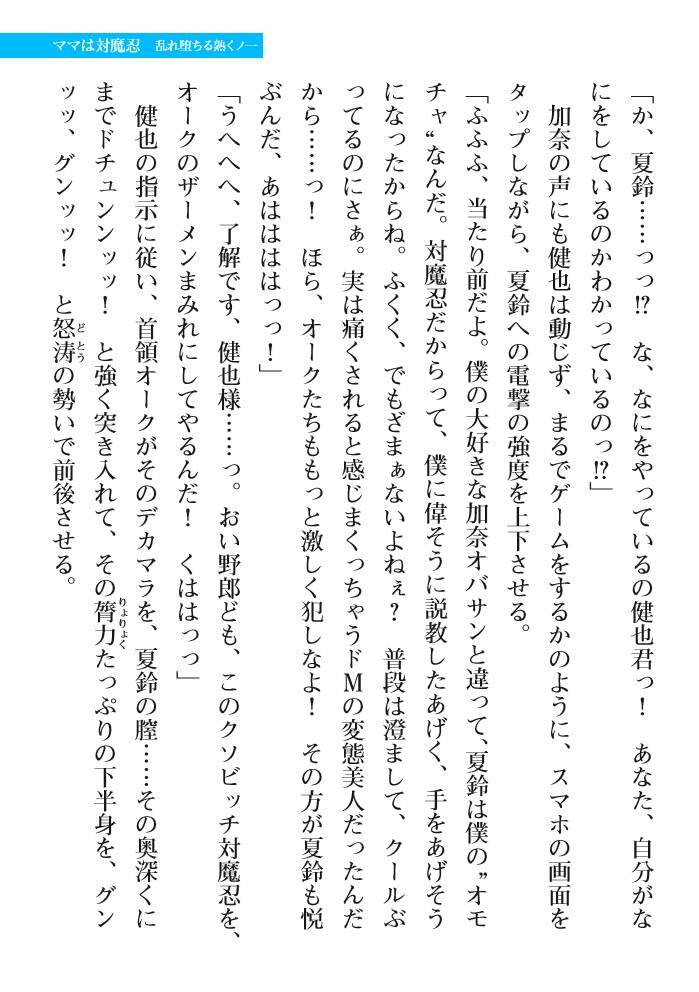 ママは対魔忍　乱れ堕ちる熟くノ一
「か、夏鈴……っっ!?　な、なにをやっているの健也君っ！　あなた、自分がな
にをしているのかわかっているのっ!?」
　加奈の声にも健也は動じず、まるでゲームをするかのように、スマホの画面を
タップしながら、夏鈴への電撃の強度を上下させる。
「ふふふ、当たり前だよ。僕の大好きな加奈オバサンと違って、夏鈴は僕の〟オモ
チャ〝なんだ。対魔忍だからって、僕に偉そうに説教したあげく、手をあげそう
になったからね。ふくく、でもざまぁないよねぇ？　普段は澄まして、クールぶ
ってるのにさぁ。実は痛くされると感じまくっちゃうドＭの変態美人だったんだ
から……っ！　ほら、オークたちももっと激しく犯しなよ！　その方が夏鈴も悦
ぶんだ、あははははっっ！」
「うへへへ、了解です、健也様……っ。おい野郎ども、このクソビッチ対魔忍を、
オークのザーメンまみれにしてやるんだ！　くははっっ」
　健也の指示に従い、首領オークがそのデカマラを、夏鈴の膣……その奥深くに
までドチュンンッッ！　と強く突き入れて、その膂力たっぷりの下半身を、グン
ッッ、グンッッ！　と怒涛の勢いで前後させる。